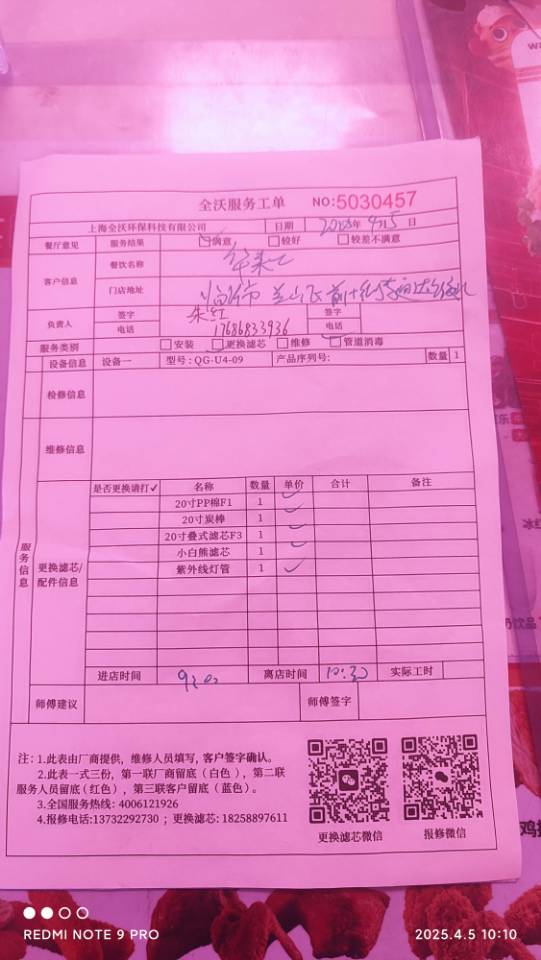 全沃服务工单 NO:5030457
上海全沃环保科技有限公司 日期 2025年4月5日
餐厅意见 服务结果 满意 较好 较差不满意
客户信息 餐饮名称 华莱士
门店地址 临沂市兰山区前十
负责人 签字 朱红 签字
电话 17686833936 电话
服务类别 安装 更换滤芯 维修 管道消毒
设备信息 设备一 型号:QG-U4-09 产品序列号: 数量 1
检修信息
维修信息
服务信息
更换滤芯/配件信息
是否更换请打✓ 名称 数量 单价 合计 备注
20寸PP棉F1 1 ✓
20寸炭棒 1 ✓
20寸叠式滤芯F3 1 ✓
小白熊滤芯 1 ✓
紫外线灯管 1 ✓
进店时间 离店时间 10:30 实际工时
师傅建议 师傅签字
注: 1.此表由厂商提供, 维修人员填写, 客户签字确认。
2.此表一式三份, 第一联厂商留底(白色), 第二联
服务人员留底(红色), 第三联客户留底(蓝色)。
3.全国服务热线: 4006121926
4.报修电话:13732292730 ; 更换滤芯: 18258897611
更换滤芯微信 报修微信
REDMI NOTE 9 PRO 2025.4.5 10:10